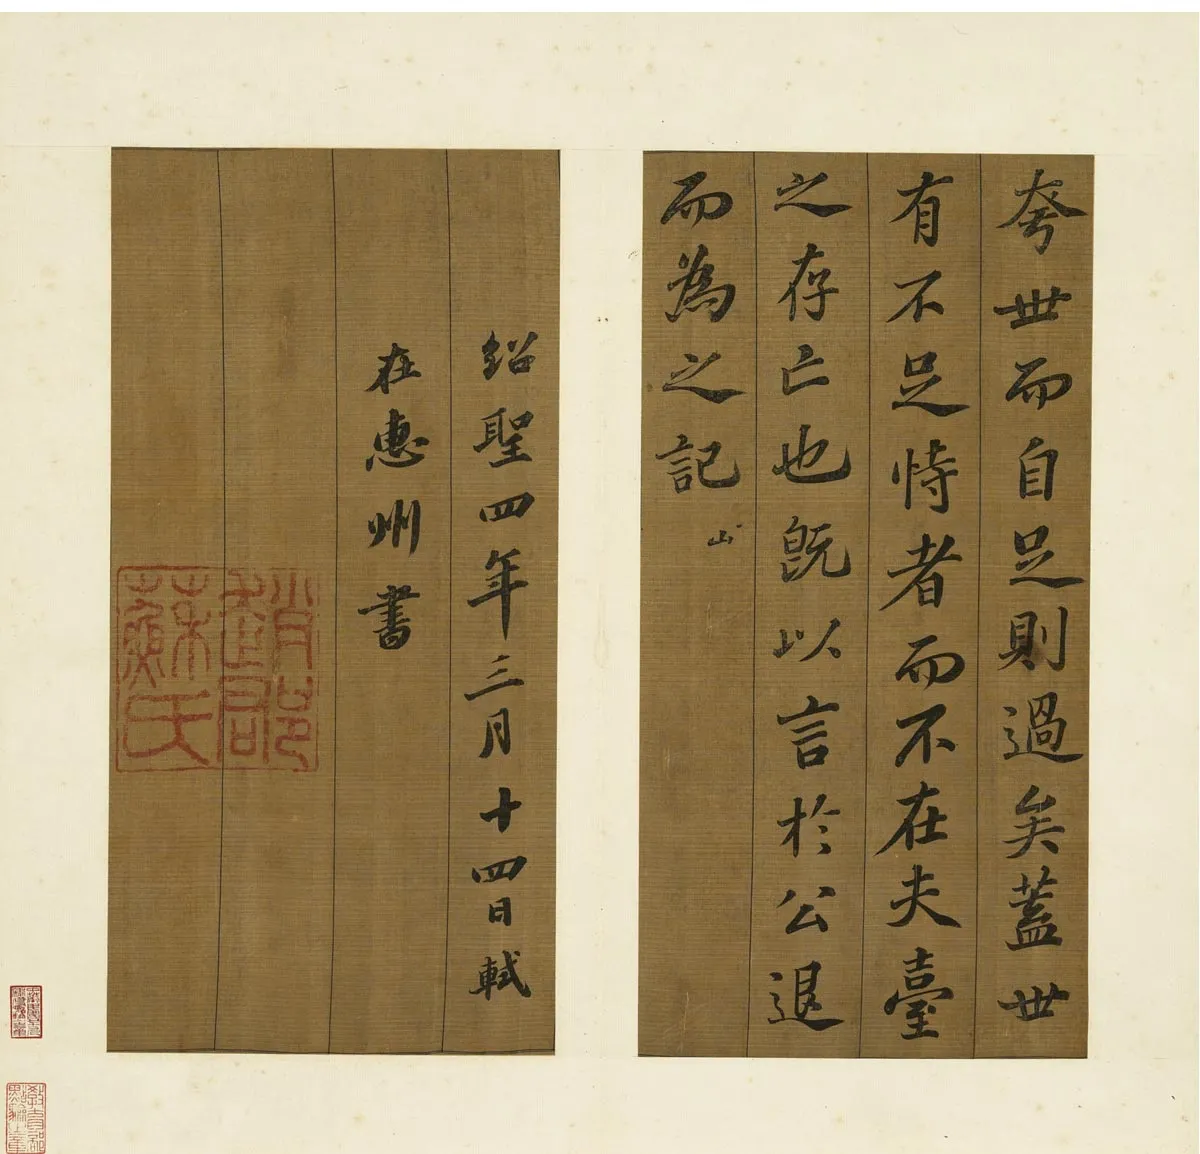 夸世而自足則過矣蓋世
有不足恃者而不在夫臺
之存亡也既以言於公退
而為之記
山
紹聖四年三月十四日軾
在惠州書
趙郡
蘇氏